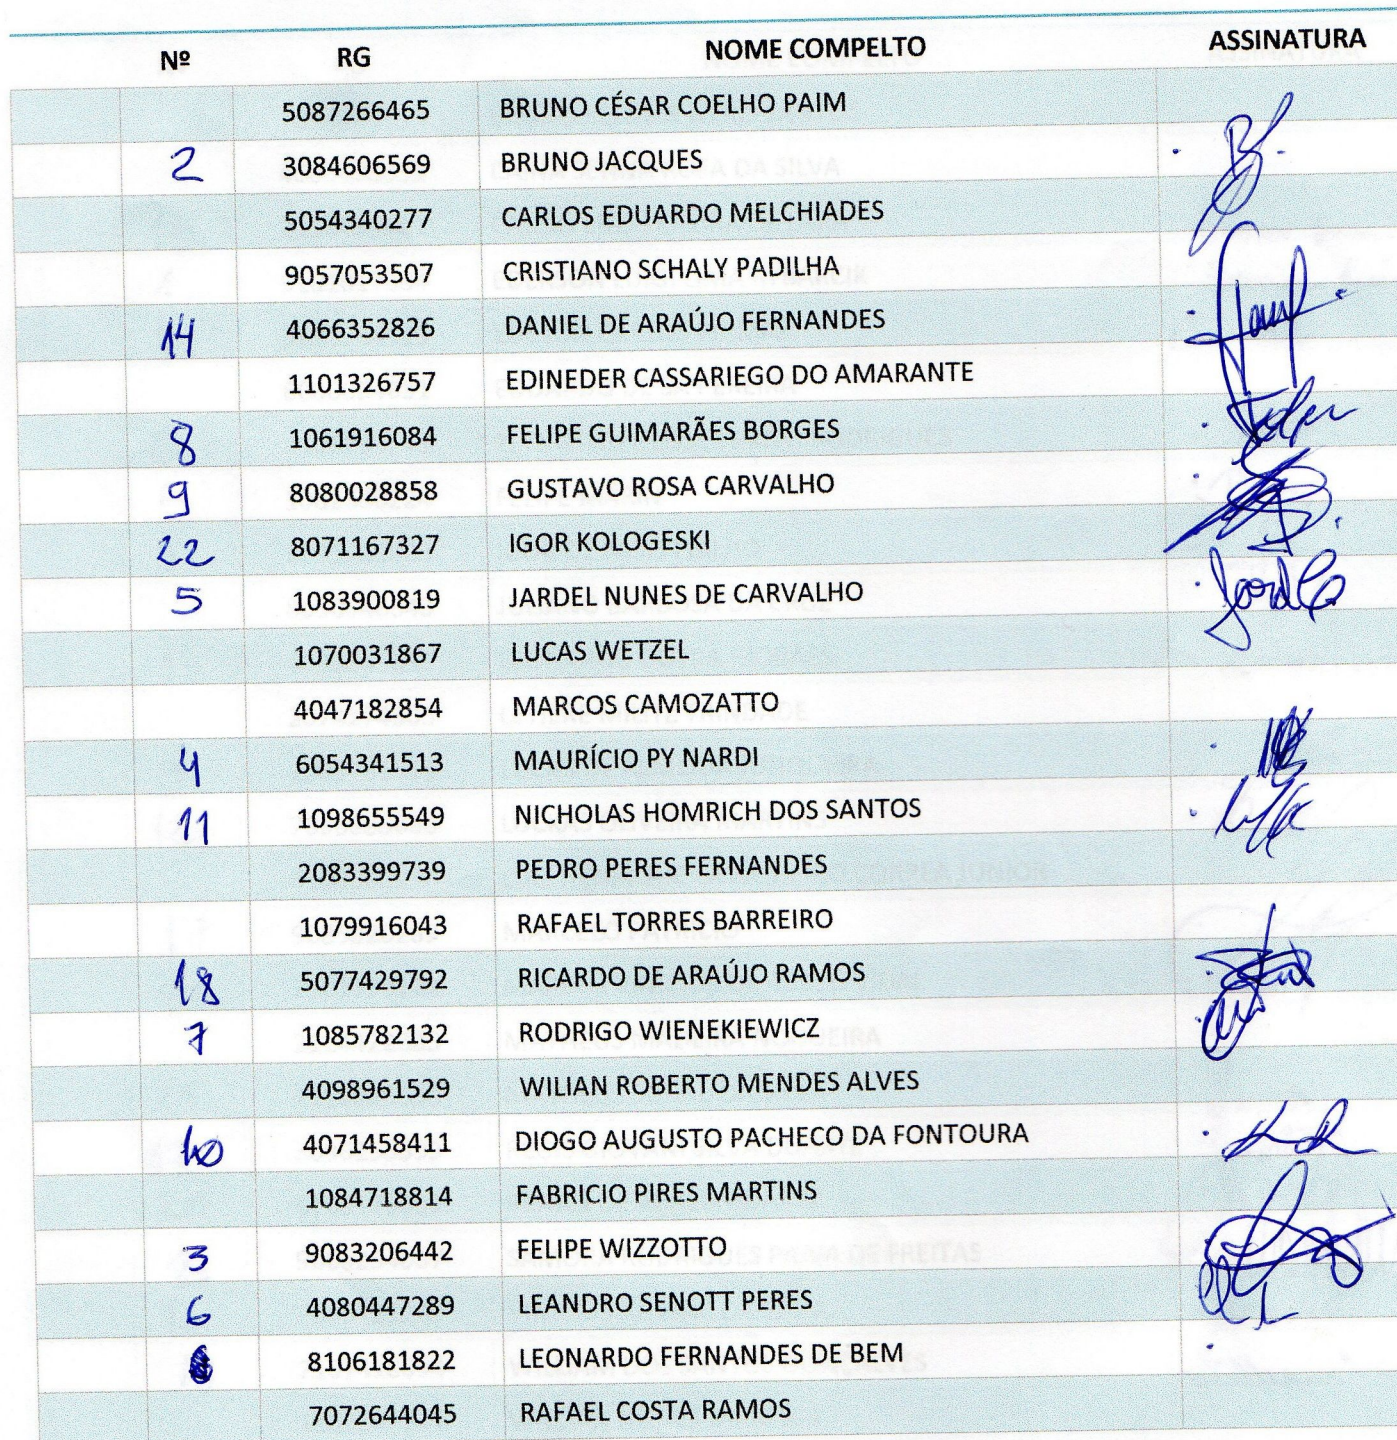 Nº RG NOME COMPELTO ASSINATURA
5087266465 BRUNO CÉSAR COELHO PAIM
2 3084606569 BRUNO JACQUES
5054340277 CARLOS EDUARDO MELCHIADES
9057053507 CRISTIANO SCHALY PADILHA
14 4066352826 DANIEL DE ARAÚJO FERNANDES
1101326757 EDINEDER CASSARIEGO DO AMARANTE
8 1061916084 FELIPE GUIMARÃES BORGES
9 8080028858 GUSTAVO ROSA CARVALHO
22 8071167327 IGOR KOLOGESKI
5 1083900819 JARDEL NUNES DE CARVALHO
1070031867 LUCAS WETZEL
4047182854 MARCOS CAMOZATTO
4 6054341513 MAURÍCIO PY NARDI
11 1098655549 NICHOLAS HOMRICH DOS SANTOS
2083399739 PEDRO PERES FERNANDES
1079916043 RAFAEL TORRES BARREIRO
18 5077429792 RICARDO DE ARAÚJO RAMOS
7 1085782132 RODRIGO WIENEKIEWICZ
4098961529 WILIAN ROBERTO MENDES ALVES
10 4071458411 DIOGO AUGUSTO PACHECO DA FONTOURA
1084718814 FABRICIO PIRES MARTINS
3 9083206442 FELIPE WIZZOTTO
6 4080447289 LEANDRO SENOTT PERES
8106181822 LEONARDO FERNANDES DE BEM
7072644045 RAFAEL COSTA RAMOS